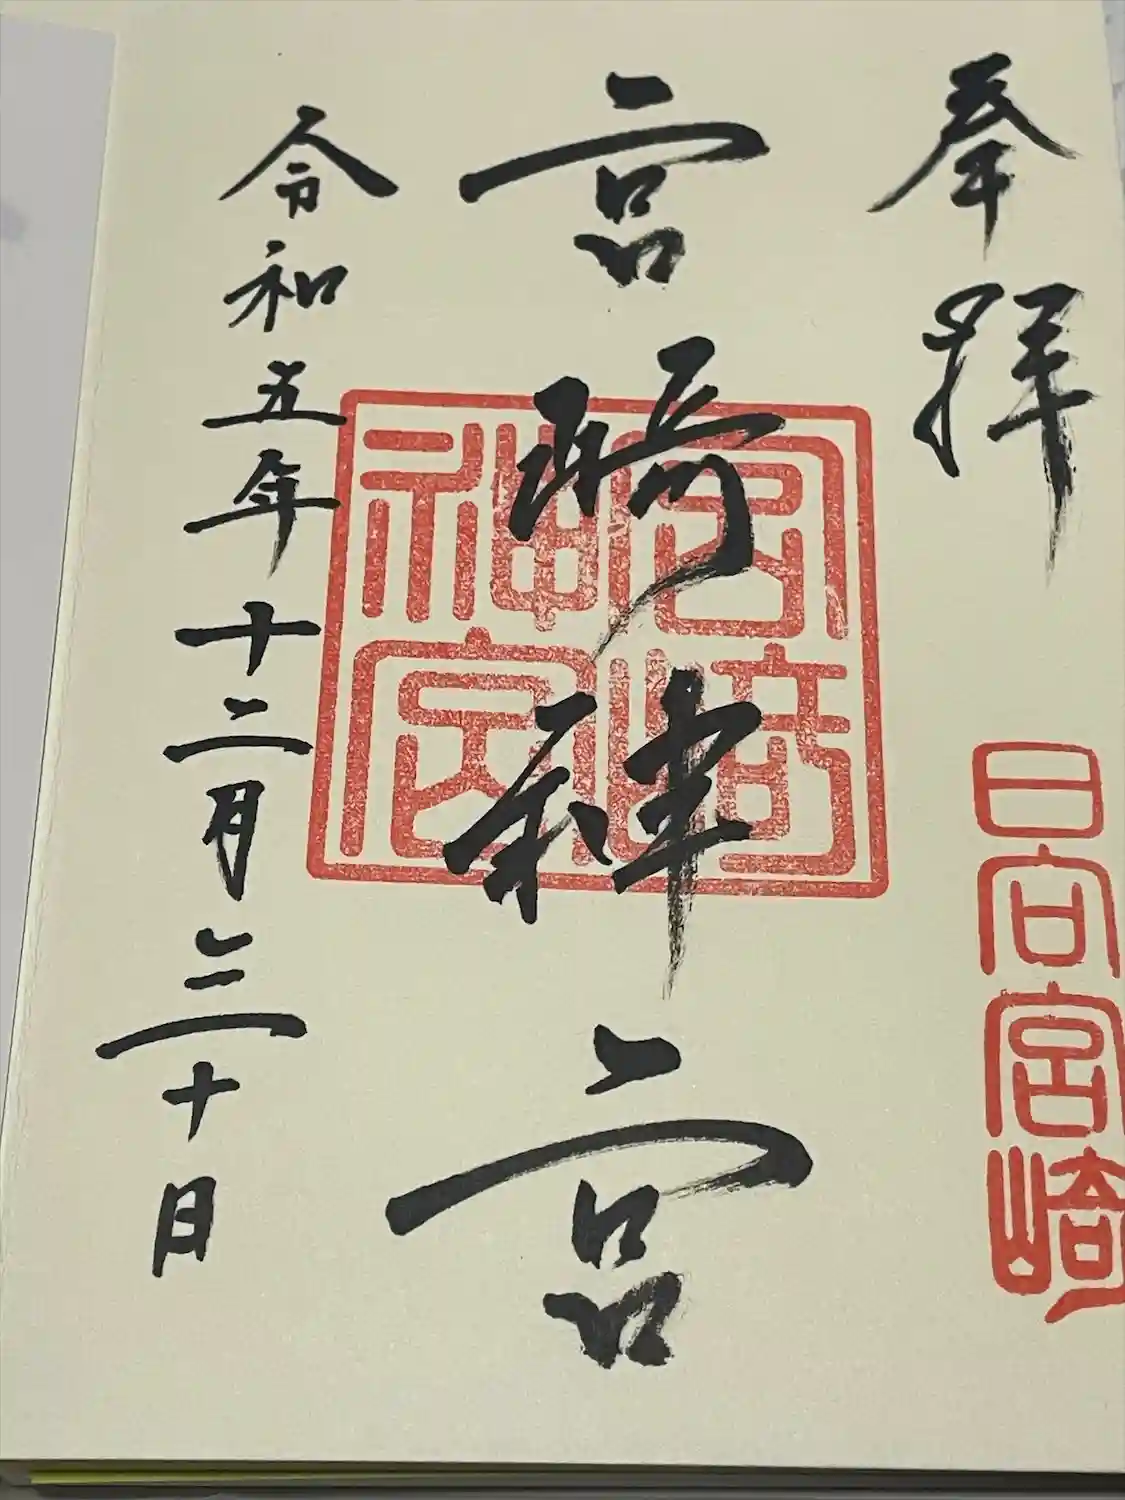 奉拝
日向宮崎
宮崎神宮
宮崎神宮
令和五年十二月三十日